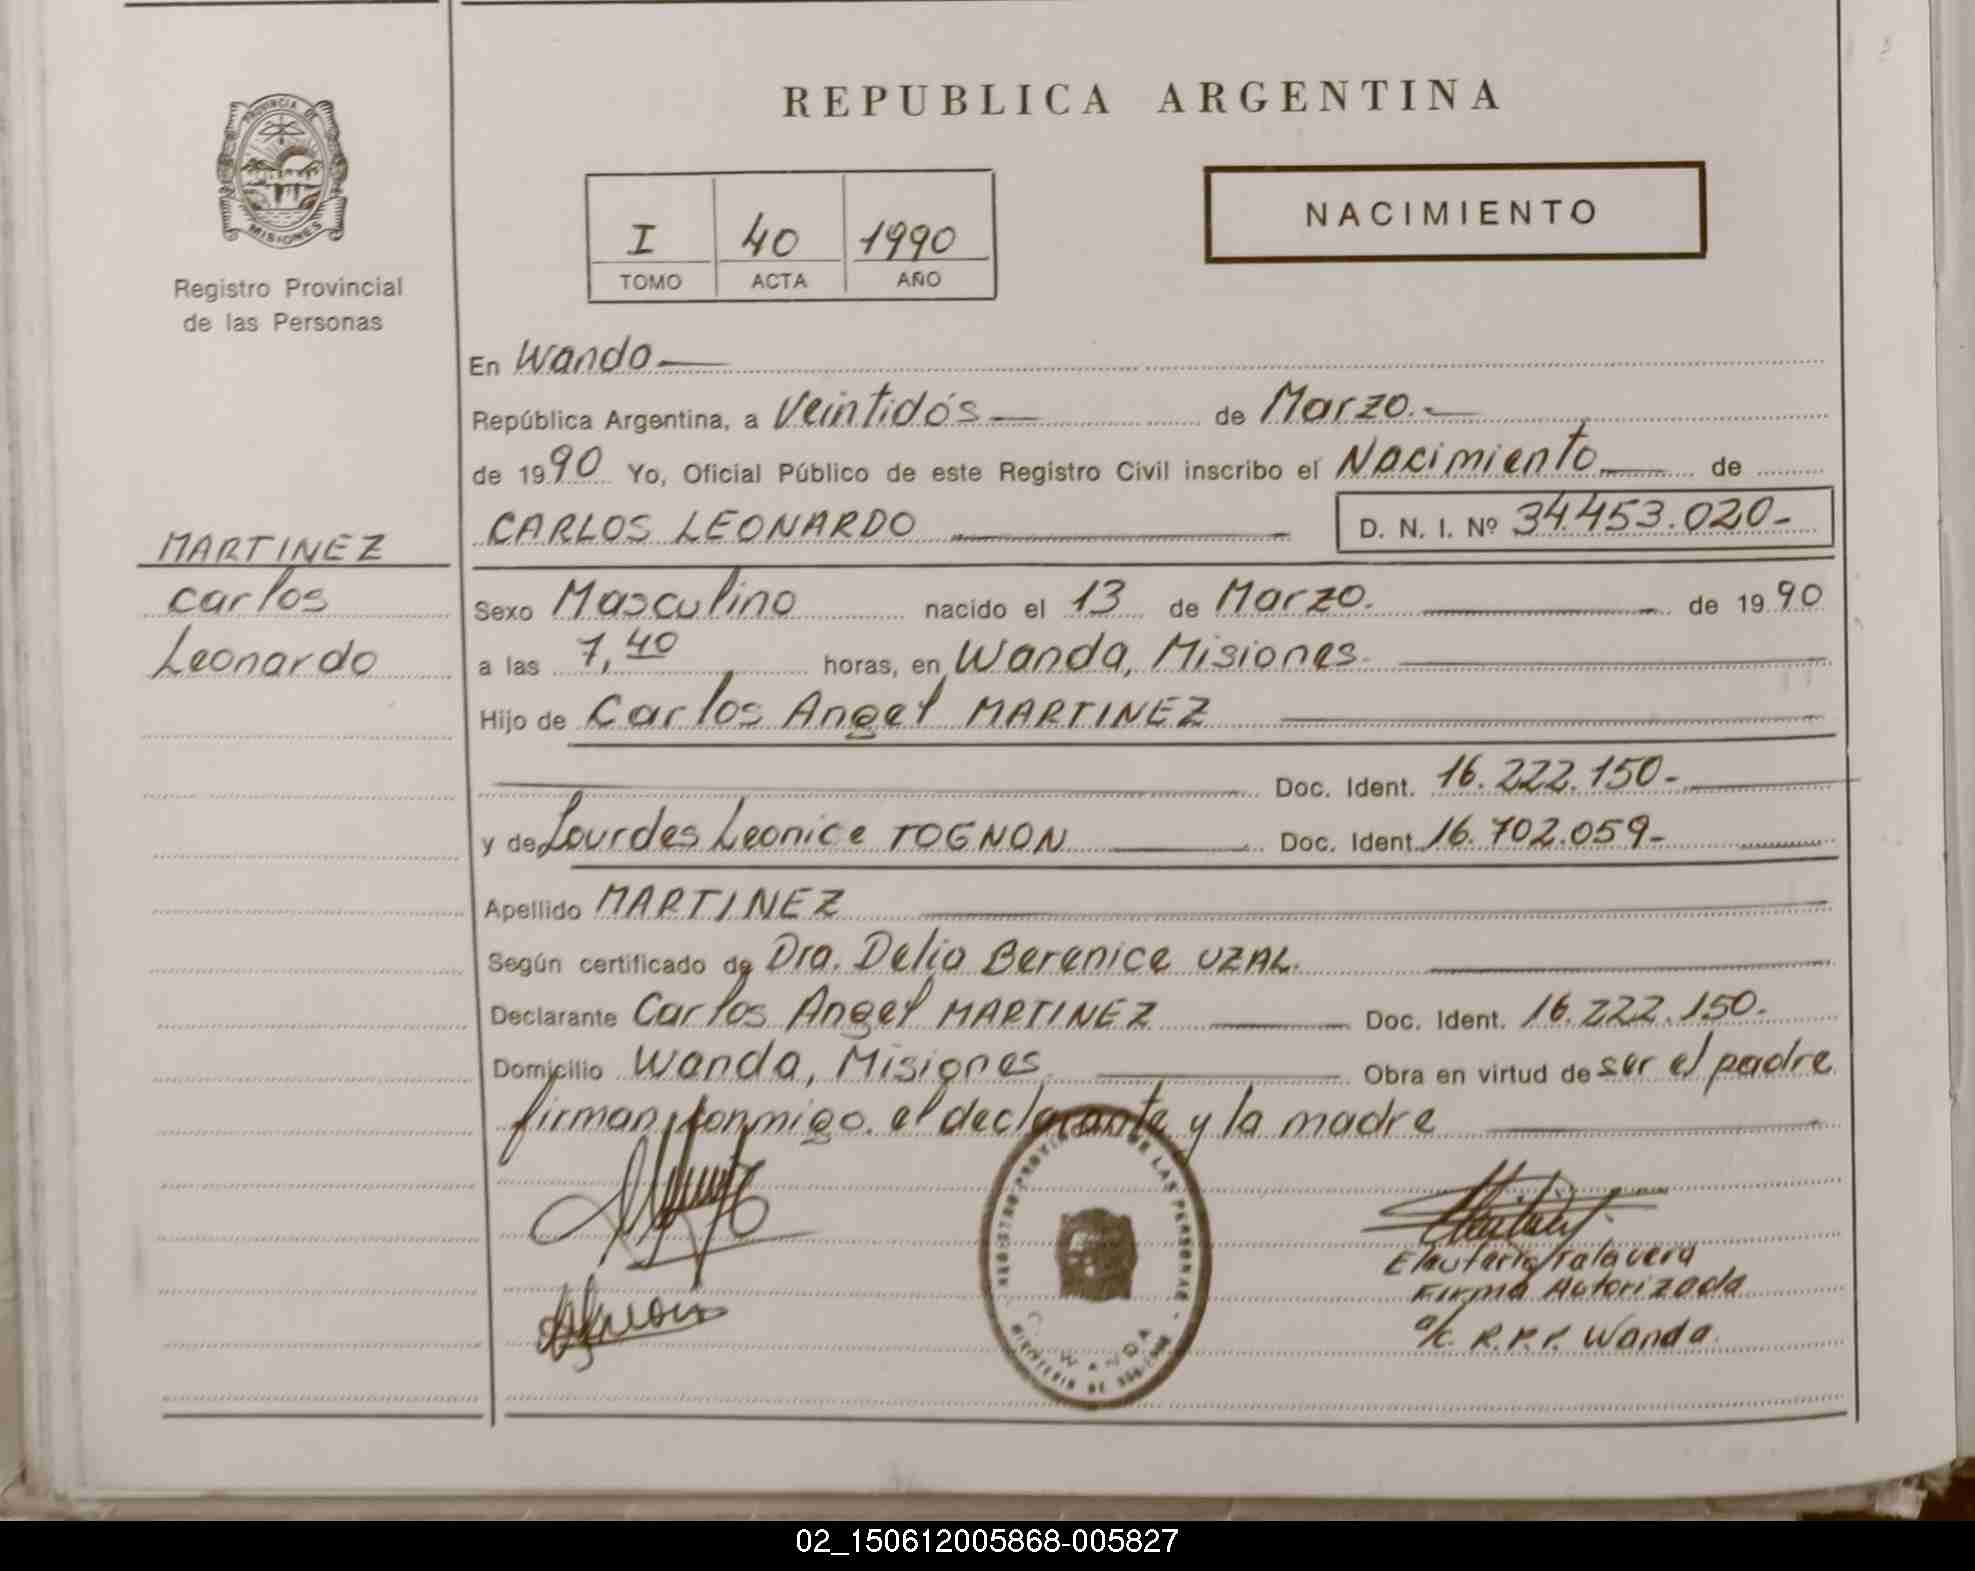 REPUBLICA ARGENTINA
PROVINCIA DE
MISIONES
Registro Provincial
de las Personas
I 40 1990
TOMO ACTA AÑO
NACIMIENTO
En Wanda
República Argentina, a Veintidós de Marzo.
de 1990 Yo, Oficial Público de este Registro Civil inscribo el Nacimiento de
CARLOS LEONARDO D. N. I. Nº 34.453.020-
MARTINEZ
Carlos
Leonardo
Sexo Masculino nacido el 13 de Marzo. de 1990
a las 7,40 horas, en Wanda, Misiones.
Hijo de Carlos Angel MARTINEZ
Doc. Ident. 16.222.150-
y de Lourdes Leonice TOGNON Doc. Ident. 16.702.059-
Apellido MARTINEZ
Según certificado de Dra. Delia Berenice UZAL.
Declarante Carlos Angel MARTINEZ Doc. Ident. 16.222.150.
Domicilio Wanda, Misiones Obra en virtud de ser el padre
firman conmigo. el declarante y la madre
REGISTRO PROVINCIAL DE LAS PERSONAS -
WANDA
MINISTERIO DE GOBIERNO
Eleuterio Talavera
Firma Autorizada
a/c. R.P.P. Wanda.
02_150612005868-005827